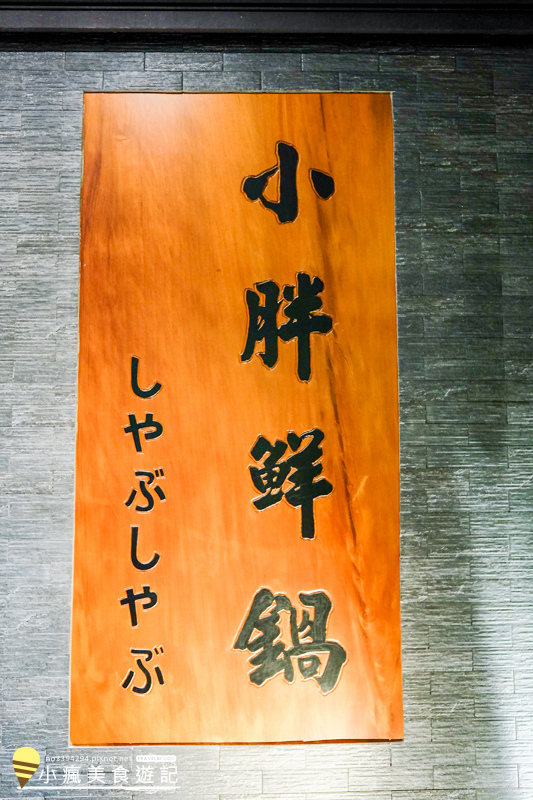 小胖鮮鍋
しゃぶしゃぶ
no8394294.pixnet.net
小瘋美食遊記